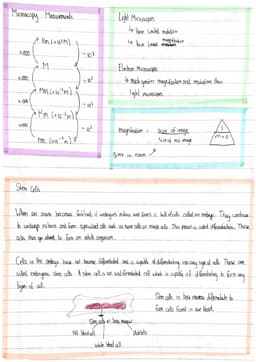 Microscopy Measurements
Km (×10³M)
×1000
÷10³
M
×1000
÷10³
Mm (×10⁻³M)
×1000
÷10³
Mm (×10⁻⁶M)
×1000
÷10³
nm (×10⁻⁹M)
Light Microscopes
↳ have limited resolution
↳ have limited magnification
Electron Microscopes
↳ Much greater magnification and resolution than
light microscopes.
magnification = size of image
size of real image
I
m × o
When an ovum becomes fertilised, it undergoes mitosis and forms a ball of cells called an embryo. They continue
to undergo mitosis and form specialised cells such as nerve cells or muscle cells. This process is called differentiation. These
cells then go ahead to form an adult organism.
Cells in the embryo have not become differentiated and is capable of differentiating into any type of cells. These are
called embryonic stem cells. A stem cell is an undifferentiated cell which is capable of differentiating to form any
types of cell.
Stem Cells
Stem cells in bone marrow differentiate to
form cells found in our blood.
Stem cells in bone marrow
red blood cell
platelets
white blood cell